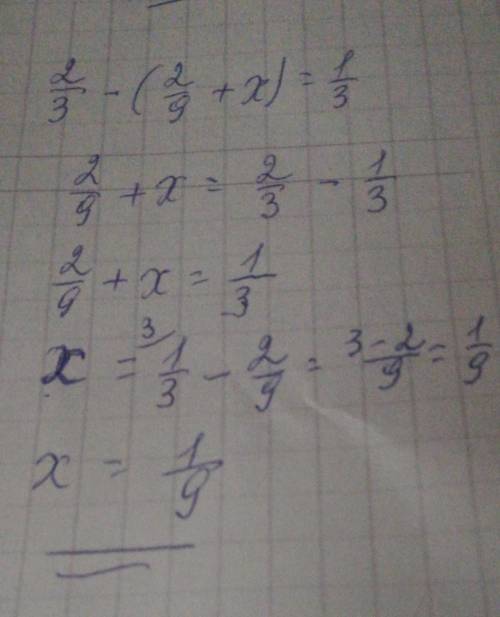 2/3 - (2/9 + x) = 1/3
2/9 + x = 2/3 - 1/3
2/9 + x = 1/3
x = ³⁾1/3 - 2/9 = 3-2/9 = 1/9
x = 1/9